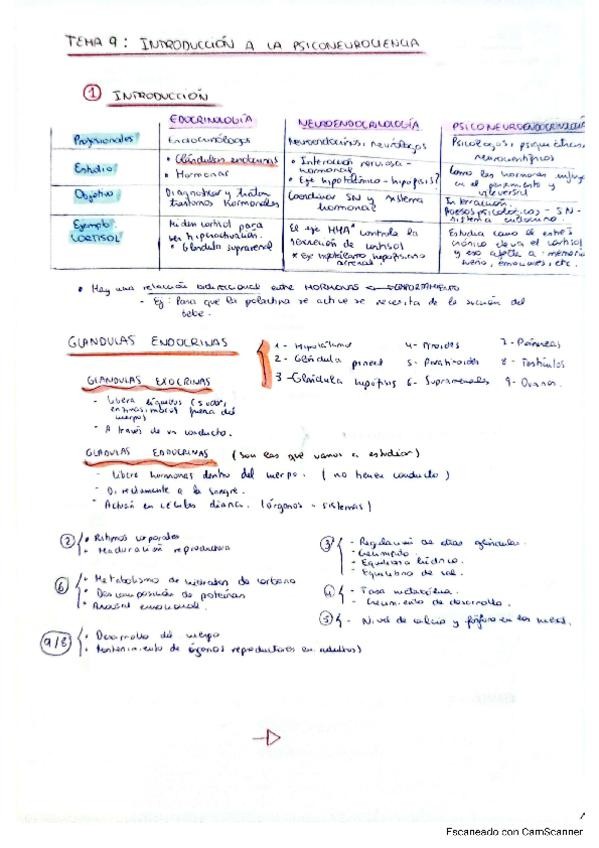 TEMA 9: INTRODUCCIÓN A LA PSICONEUROCIENCIA
① INTRODUCCIÓN
ENDOCRINOLOGÍA NEUROENDOCRINOLOGÍA PSICONEUROENDOCRINOLOGÍA
Profesionales Endocrinólogos Neuroendocrinos, neurólogos Psicólogos, psiquiatras, neurocientíficos
Estudio • Glándulas endocrinas • Hormonas • Interacción nerviosa - hormonas • Eje hipotálamico - hipófisis? Como las hormonas influyen en el pensamiento y viceversa
Objetivo Diagnosticar y tratar trastornos hormonales Coordinar SN y sistema hormonal Interacción. Procesos psicológicos - SN - sistema endocrino.
Ejemplo: CORTISOL Miden cortisol para ver hiperactivación. • Glándula suprarenal El eje HHA* controla la secreción de cortisol * Eje hipotálamo hipofisario adrenal Estudia como el estrés crónico eleva el cortisol y eso afecta a memoria sueño, emociones, etc.
• Hay una relación bidireccional entre HORMONAS ↔ COMPORTAMIENTO
- Ej: Para que la prolactina se active se necesita de la succión del
bebe.
GLANDULAS ENDOCRINAS
1 - Hipotálamo 4 - Tiroides 7 - Páncreas
2 - Glándula pineal 5 - Paratiroides 8 - Testículos
3 - Glándula hipófisis 6 - Suprarrenales 9 - Ovarios.
GLANDULAS EXOCRINAS
- Libera líquidos (sudor,
enzimas, moco) fuera del
cuerpo)
- A través de un conducto.
GLADULAS ENDOCRINAS (son las que vamos a estudiar)
- Libera hormonas dentro del cuerpo. (no tienen conducto)
- Directamente a la sangre.
- Actúan en células dianas. (órganos - sistemas)
② • Ritmos corporales
• Maduración reproductora
③ - Regulación de otras glándulas.
- Crecimiento
- Equilibrio hídrico.
- Equilibrio de sal.
⑥ • Metabolismo de hidratos de carbono
• Descomposición de proteínas
• Arousal emocional.
④ - Tasa metabólica.
- Crecimiento de desarrollo.
⑤ - Nivel de calcio y fósforo en los
9/8 • Desarrollo del cuerpo
• Mantenimiento de órganos reproductores en adultos)
Escaneado con CamScanner